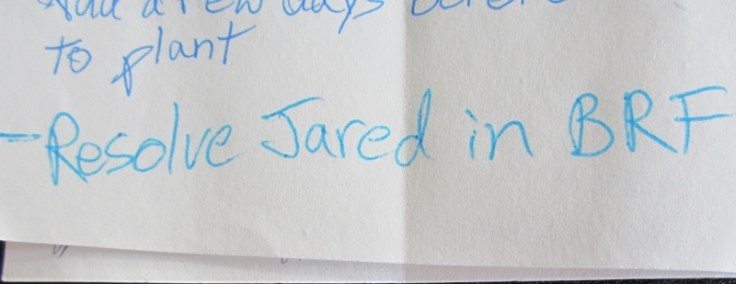 Add a few days before
to plant
- Resolve Jared in BRF